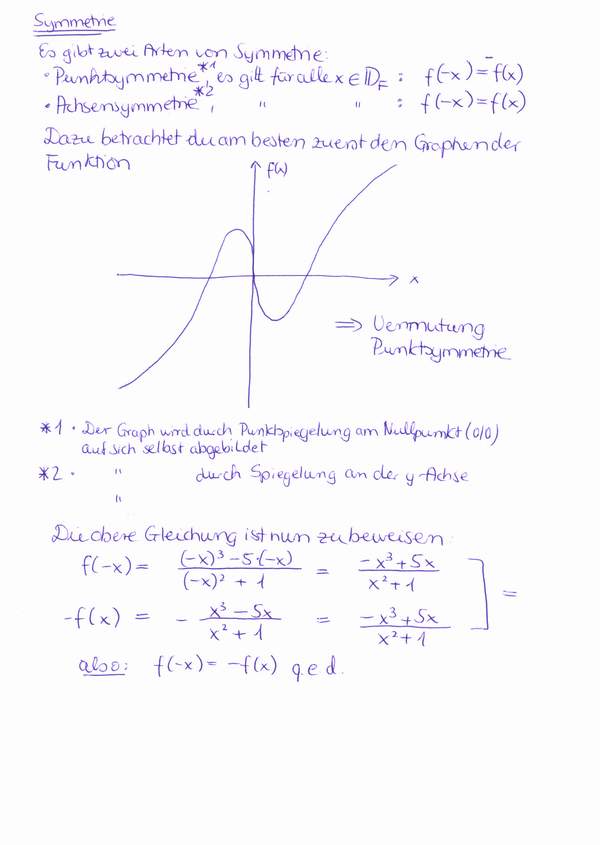 Symmetrie
Es gibt zwei Arten von Symmetrie:
• Punktsymmetrie *1, es gilt für alle x ∈ 𝔻f : f(-x) = -f(x)
• Achsensymmetrie *2, " " : f(-x) = f(x)
Dazu betrachtet du am besten zuerst den Graphen der
Funktion
f(x)
x
⇒ Vermutung
Punktsymmetrie
*1 • Der Graph wird durch Punktspiegelung am Nullpunkt (0/0)
auf sich selbst abgebildet
*2 • " durch Spiegelung an der y-Achse
"
Die obere Gleichung ist nun zu beweisen:
f(-x) = ((-x)³ - 5·(-x))/((-x)² + 1) = (-x³ + 5x)/(x² + 1)
=
-f(x) = - (x³ - 5x)/(x² + 1) = (-x³ + 5x)/(x² + 1)
also: f(-x) = -f(x) q.e.d.